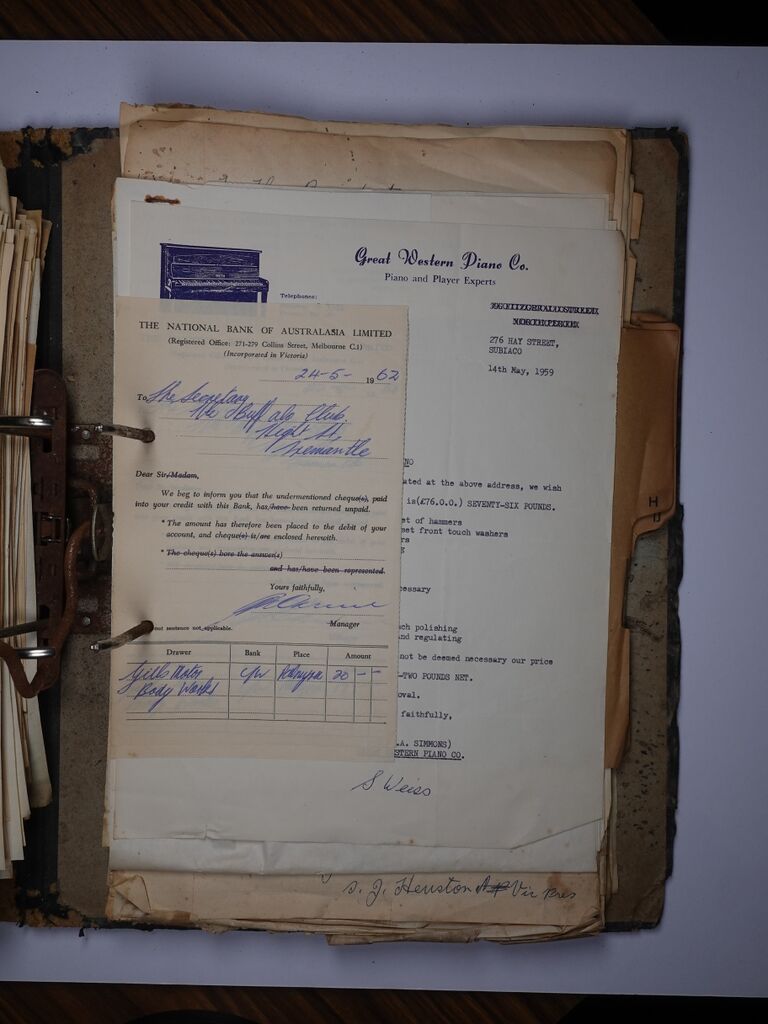 Great Western Piano Co.
Piano and Player Experts
Telephones:
276 HAY STREET,
SUBIACO
14th May, 1959
THE NATIONAL BANK OF AUSTRALASIA LIMITED
(Registered Office: 271-279 Collins Street, Melbourne C.1)
(Incorporated in Victoria)
24-5- 1962
To The Secretary
Buffalo Club
High St,
Fremantle
Dear Sir/Madam,
We beg to inform you that the undermentioned cheque(s), paid
into your credit with this Bank, has/have been returned unpaid.
* The amount has therefore been placed to the debit of your
account, and cheque(s) is/are enclosed herewith.
* The cheque(s) bore the answer(s)
and has/have been represented.
Yours faithfully,
Manager
sentence not applicable.
Drawer Bank Place Amount
Gills Motor Palmyra 20 - -
Body Works
NO
ated at the above address, we wish
is(£76.0.0.) SEVENTY-SIX POUNDS.
et of hammers
net front touch washers
rs
cessary
ch polishing
nd regulating
not be deemed necessary our price
-TWO POUNDS NET.
oval.
faithfully,
.A. SIMMONS)
STERN PIANO CO.
S Weiss
J. Heuston Vic Pres
H